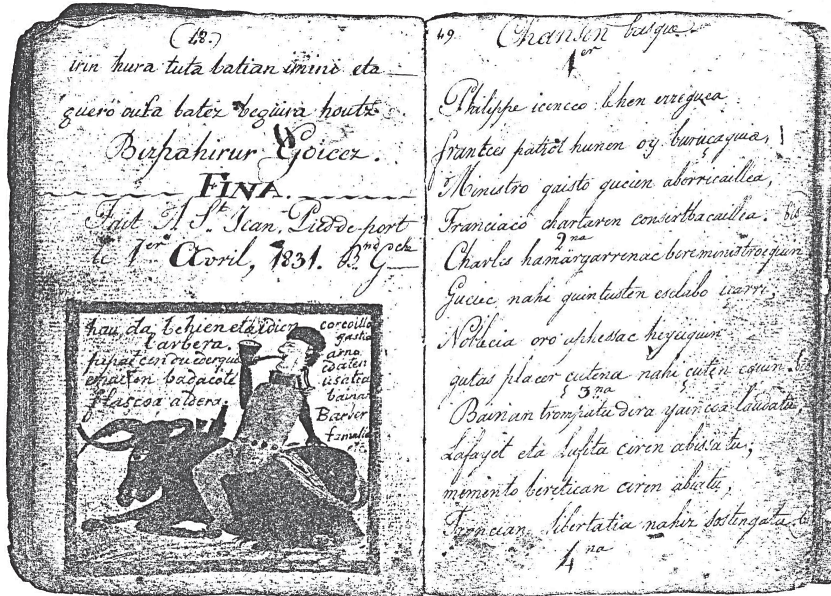 (48.)
irin hura tuta batian imini eta
guero oufa batez beguira houtz
Bizpahirur Goicez.
FINA.
Fait A St. Jean, Pied de-port
le 1er Avril, 1831. Bnd Gch
hau, da behien eta idien
barbera.
pipatcen du ederqui
ematen badacote
flascoa aldera.
gasna
arno
edaten
usatea
bainan
Barber
famalia
etc.
49
Chanson basque
1er
Philippe iceneco lehen erreguea
frantces patrol hunen oy burucaguia,
Ministro gaisto gucien aberricaillea,
Franciaco chartaren conserbacaillia. bis
2na
Charles hamargarrenac bere ministroequin
Guciec, nahi guintuzten esclabo icarri,
Noblecia oro aphessac heyequin
gutas placer cutena nahi cuten eguin.
3na
Bainan trompatu dira yaincoa laudatu,
Lafayet eta Lafita ciren abissatu,
memento beretican ciren abiatu,
Francian libertatia nahiz sostengatu.
4na